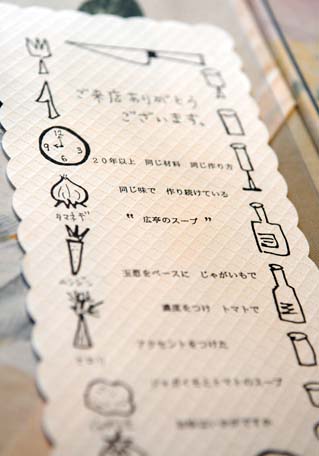 ご来店ありがとう
ございます。
12
9
3
6
20年以上 同じ材料 同じ作り方
同じ味で 作り続けている
タマネギ
" 広亭のスープ "
玉葱をベースに じゃがいもで
ニンジン
濃度をつけ トマトで
アクセントをつけた
ジャガイモとトマトのスープ
お味はいかがですか